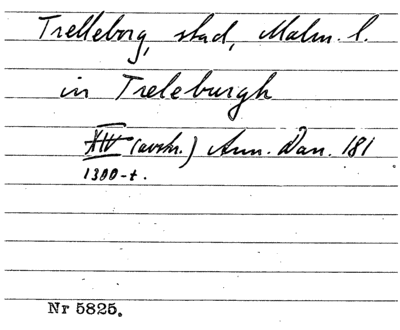 Trelleborg, stad, Malm. l.
in Treleburgh
XIV (avskr.) Ann. Dan. 181
1300-t.
Nr 5825.